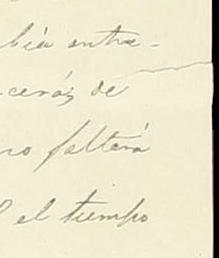 bia entre-
cerás de
no faltará
el tiempo